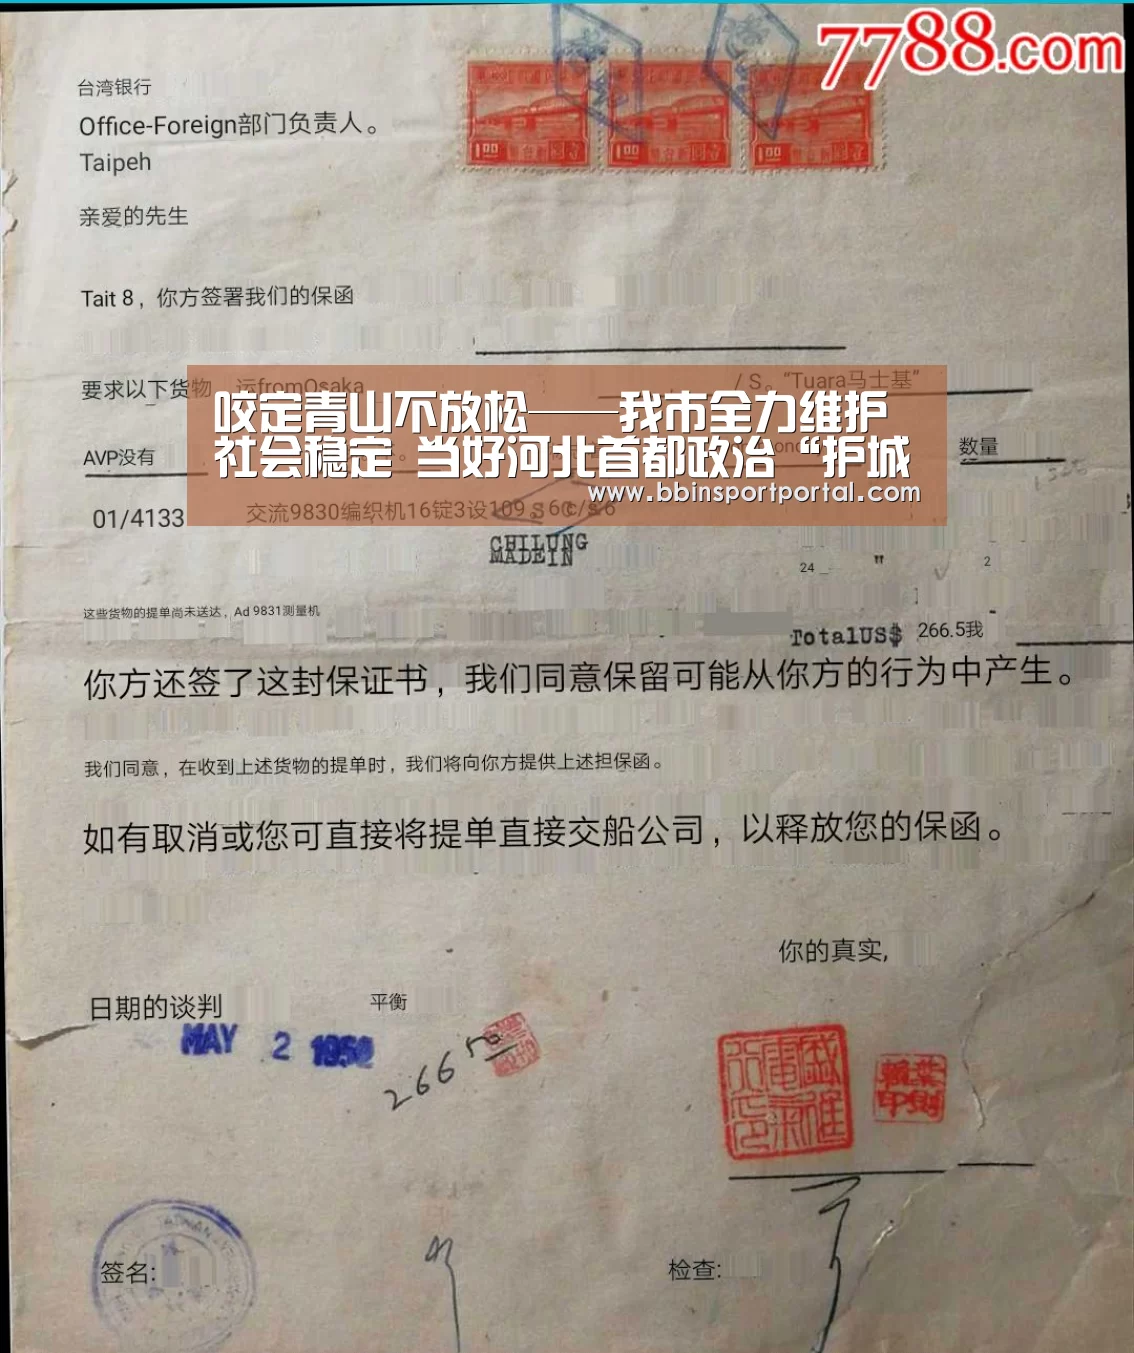 7788.com
台湾银行
Office-Foreign部门负责人。
Taipeh
1.00
1.00
1.00
亲爱的先生
Tait 8，你方签署我们的保函
要求以下货物，运fromOsaka / S。“Tuara马士基”
咬定青山不放松——我市全力维护
社会稳定 当好河北首都政治“护城
www.bbinsportportal.com
AVP没有
数量
01/4133
交流9830编织机16锭3设109
CHILUNG
MADEIN
24
"
2
这些货物的提单尚未送达，Ad 9831测量机
TotalUS$ 266.5我
你方还签了这封保证书，我们同意保留可能从你方的行为中产生。
我们同意，在收到上述货物的提单时，我们将向你方提供上述担保函。
如有取消或您可直接将提单直接交船公司，以释放您的保函。
你的真实,
日期的谈判
平衡
MAY 2 1950
266 50
签名:
检查: